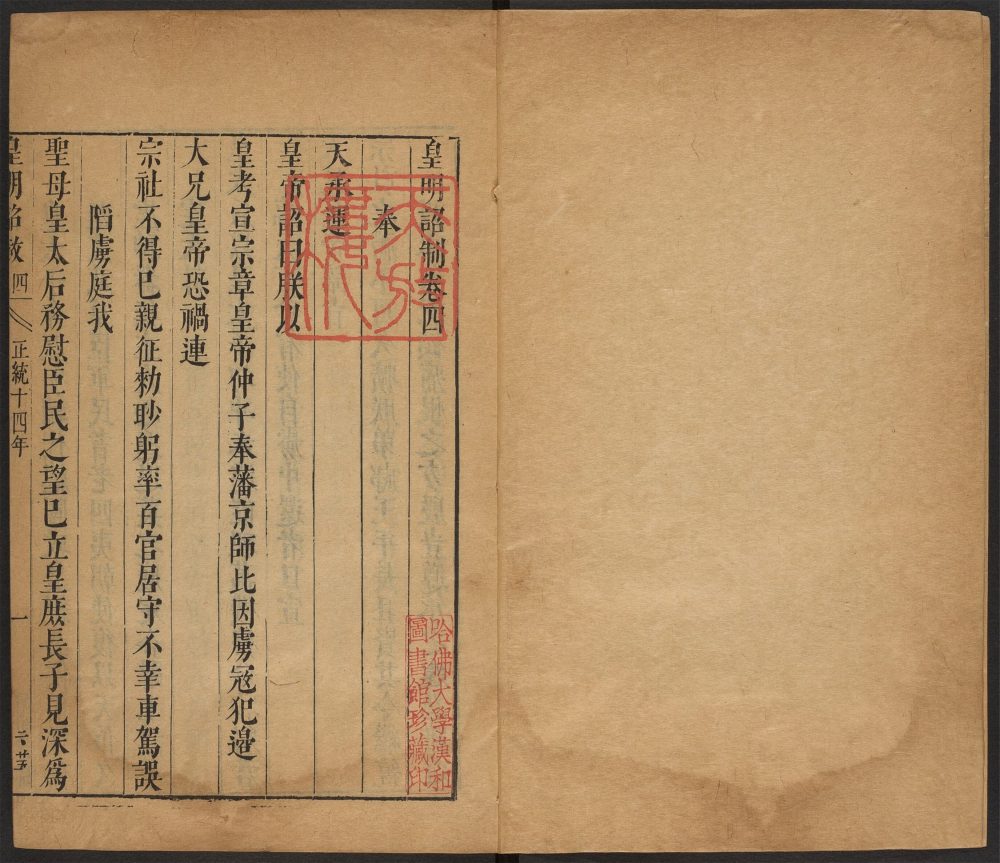 皇明詔制卷四
奉
天承運
皇帝詔曰朕以
皇考宣宗章皇帝仲子奉藩京師比因虜宼犯邉
大兄皇帝恐禍連
宗社不得已親征勑眇躬率百官居守不幸車駕誤
䧟虜庭我
聖母皇太后務慰臣民之望已立皇庻長子見深爲
皇明詔敕 四 正統十四年 一
哈佛大學漢和
圖書館珍藏印